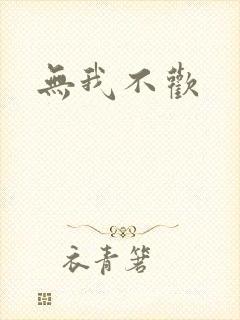 無我不歡
衣青箸